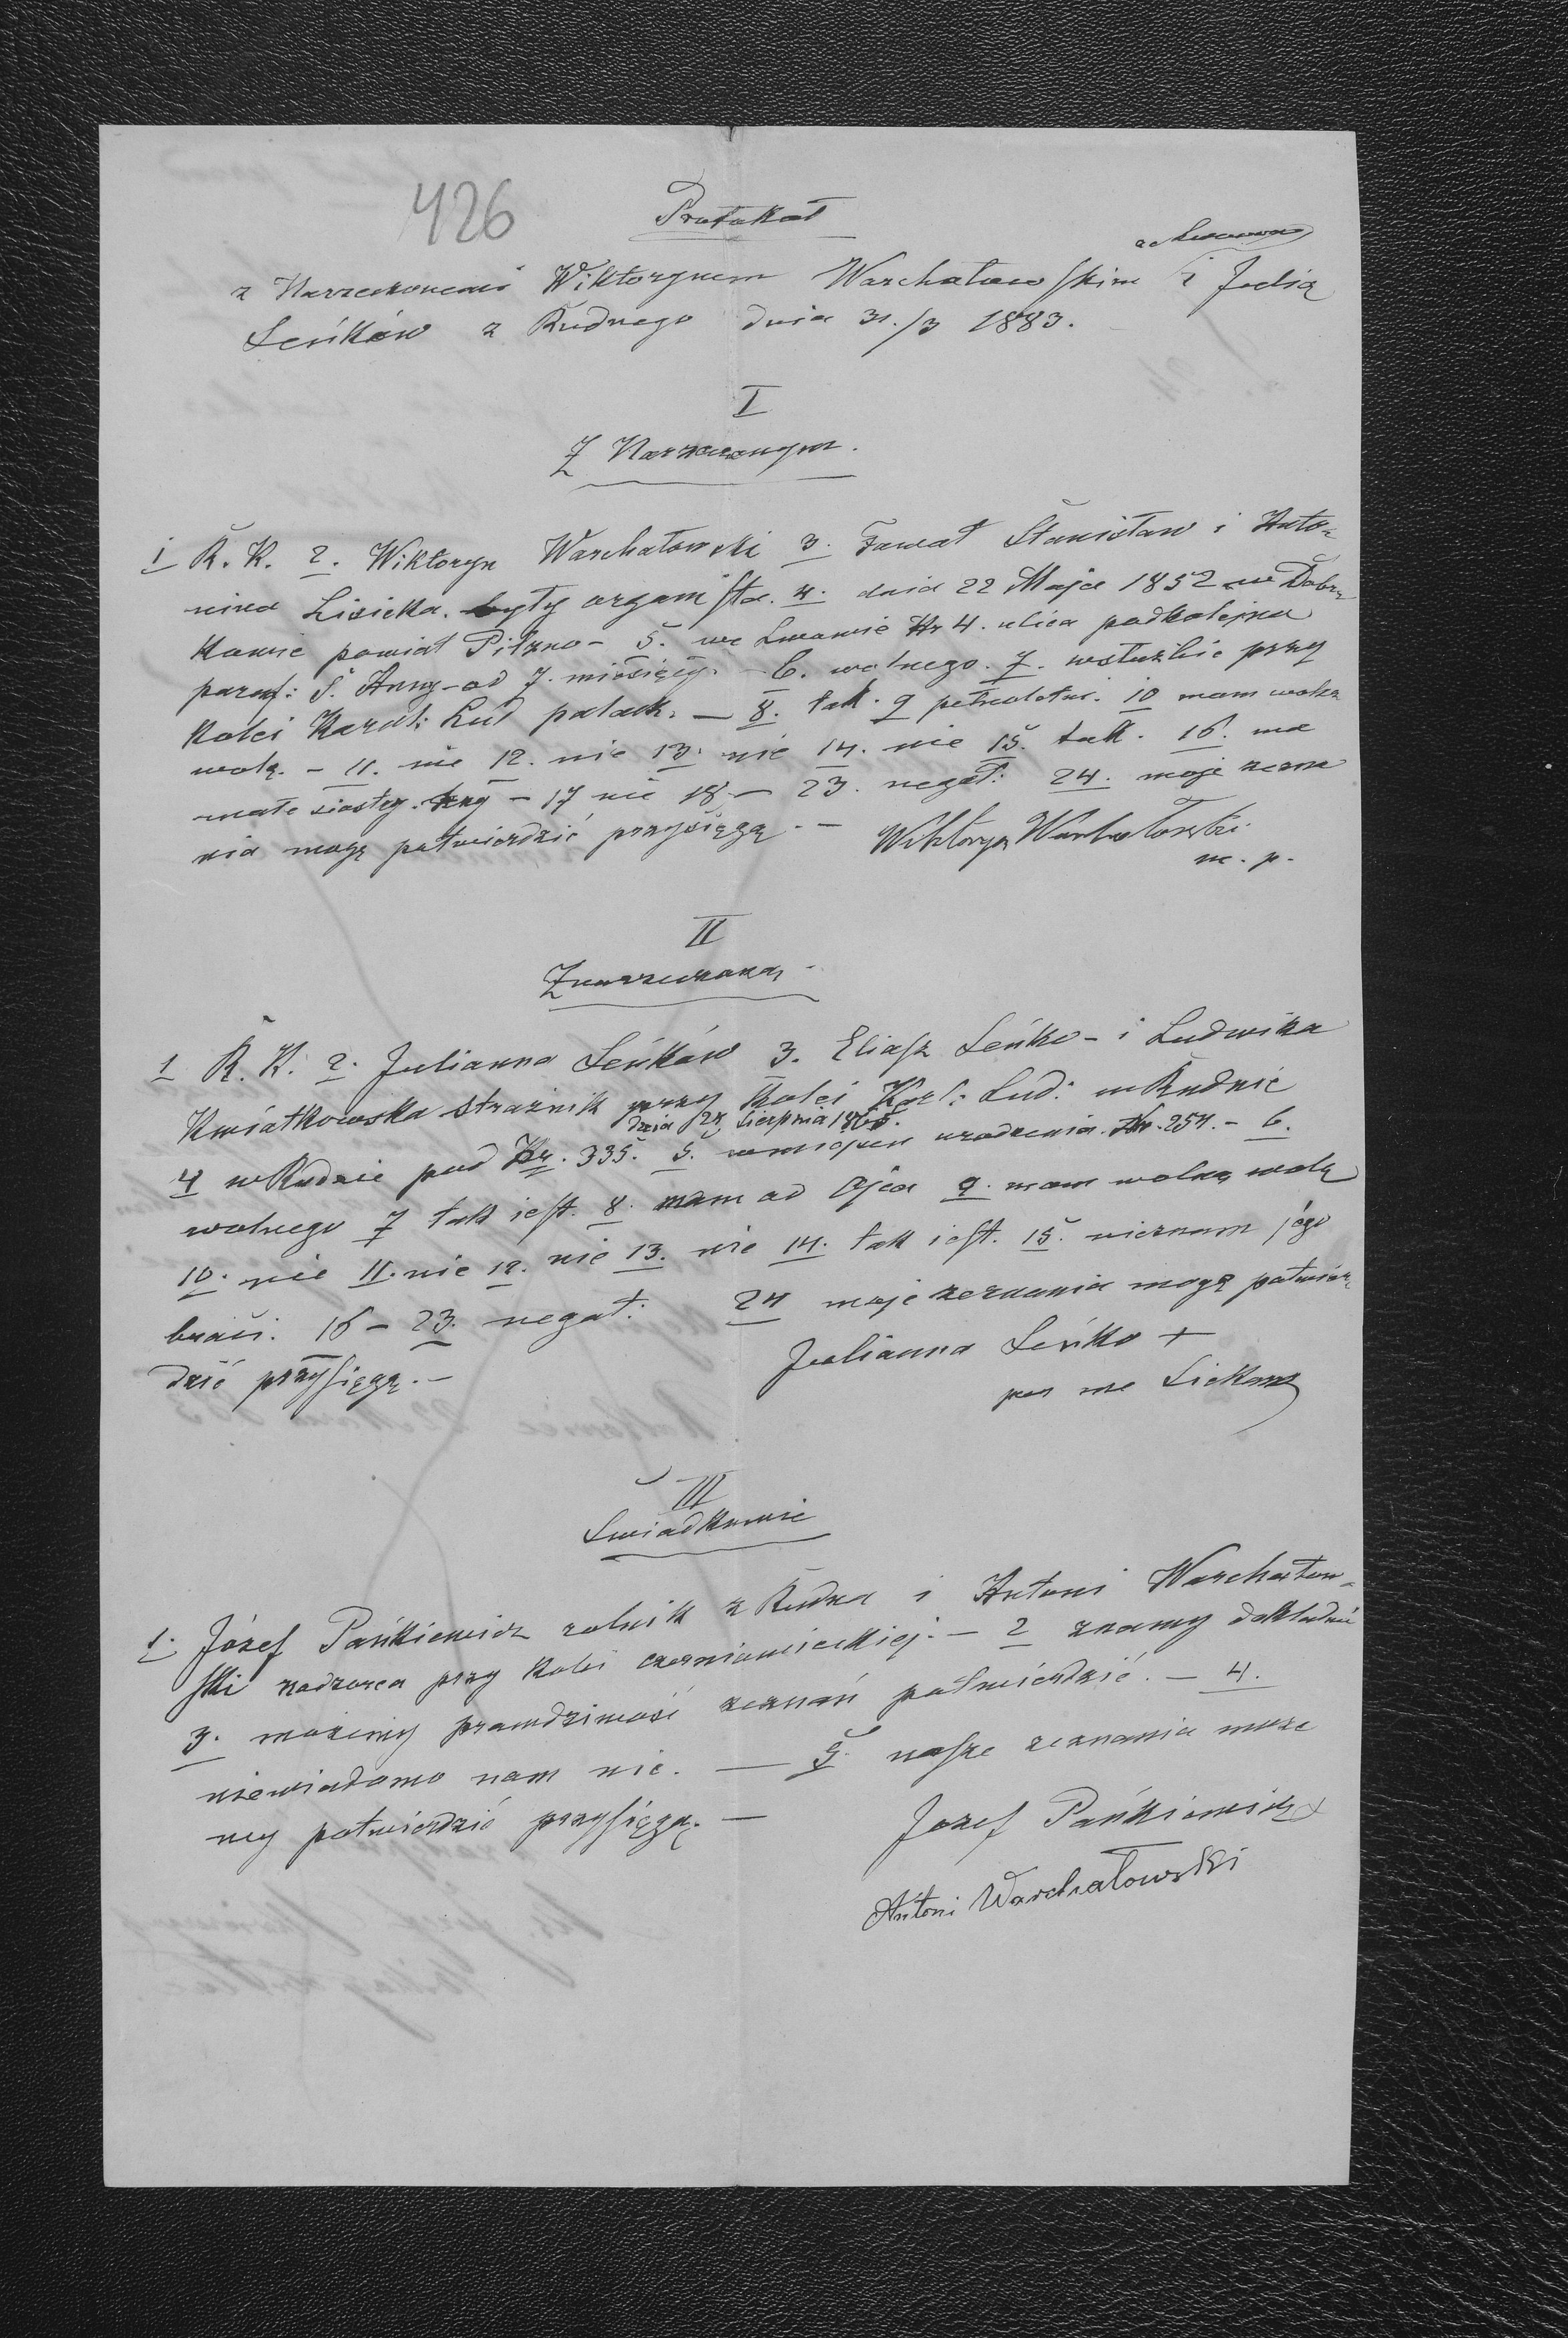 426
Protokoł
z Narzeczonemi Wiktorynem Warchałowskim ze Lwowa i Julią
Seńków z Rudnego dnia 31./3 1883.
I
Z Narzeczonym.
1 R. K. 2. Wiktoryn Warchałowski 3. Stanisław i Anto=
nina Lisicka. były organista. 4. dnia 22 Maja 1852 we Dobr=
kowie powiat Pilzno – 5. we Lwowie Nr 4. ulica podkolejna
paraf: S. Anny – od 7. miesięcy. – 6. wolnego. 7. w służbie przy
Kolei Karol: Lud – 8. tak. 9 pełnoletni. 10 mam wolną
wolę. – 11. nie 12. nie 13. nie 14. nie 15. tak. 16. ma
małe siostry. trzy – 17 nie 18 – 23. negat: 24. moje zezna
nia mogę potwierdzić przysięgą. –
Wiktoryn Warchałowski
m. p.
II
Z narzeczoną.
1 R. K. 2. Julianna Seńków 3. Eliasz Seńko – i Ludwika
Kwiatkowska strażnik przy Kolei Karl: Lud: w Rudnie
dnia 24 Sierpnia 1865.
4 w Rudnie pod Nr. 335. 5. w miejscu urodzenia. Nr. 254. – 6.
wolnego 7 tak jest. 8. mam od Ojca 9. mam wolną wolę
10. nie 11. nie 12. nie 13. nie 14. tak jest. 15. nieznam jego
braci. 16 – 23. negat: 24 moje zeznania mogę potwier=
dzić przysięgą. –
Julianna Seńko +
per me
III
Świadkowie
1. Józef Pańkiewicz rolnik z Rudna i Antoni Warchałow=
ski nadzorca przy Kolei czerniowieckiej. – 2 znamy dokładnie
3. możemy prawdziwość zeznań potwierdzić. – 4.
niewiadomo nam nic. – 5. nasze zeznania może
my potwierdzić przysięgą. –
Jozef Pańkiewicz +
Antoni Warchałowski